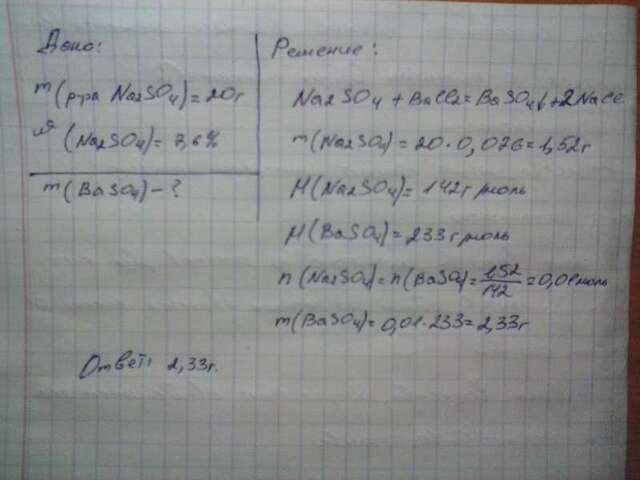 Дано:
m(р-ра Na2SO4)=20г
ω(Na2SO4)=7,6%
m(BaSO4)-?
Решение:
Na2SO4+BaCl2=BaSO4↓+2NaCl
m(Na2SO4)=20·0,076=1,52г
M(Na2SO4)=142г/моль
M(BaSO4)=233г/моль
n(Na2SO4)=n(BaSO4)=1,52/142=0,01моль
m(BaSO4)=0,01·233=2,33г
Ответ: 2,33г.